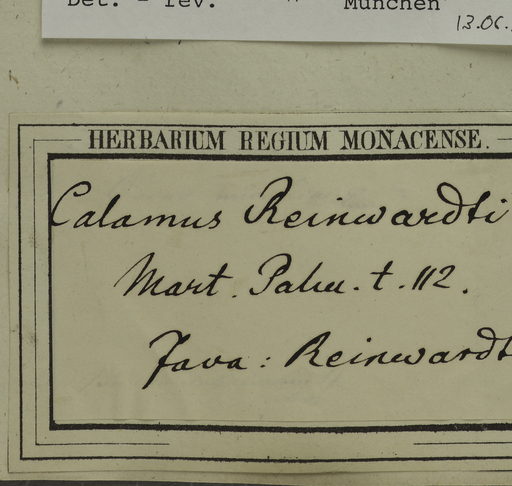 Det. - rev. " München
13.06.
HERBARIUM REGIUM MONACENSE.
Calamus Reinwardti
Mart. Palm. t. 112.
Java: Reinwardt